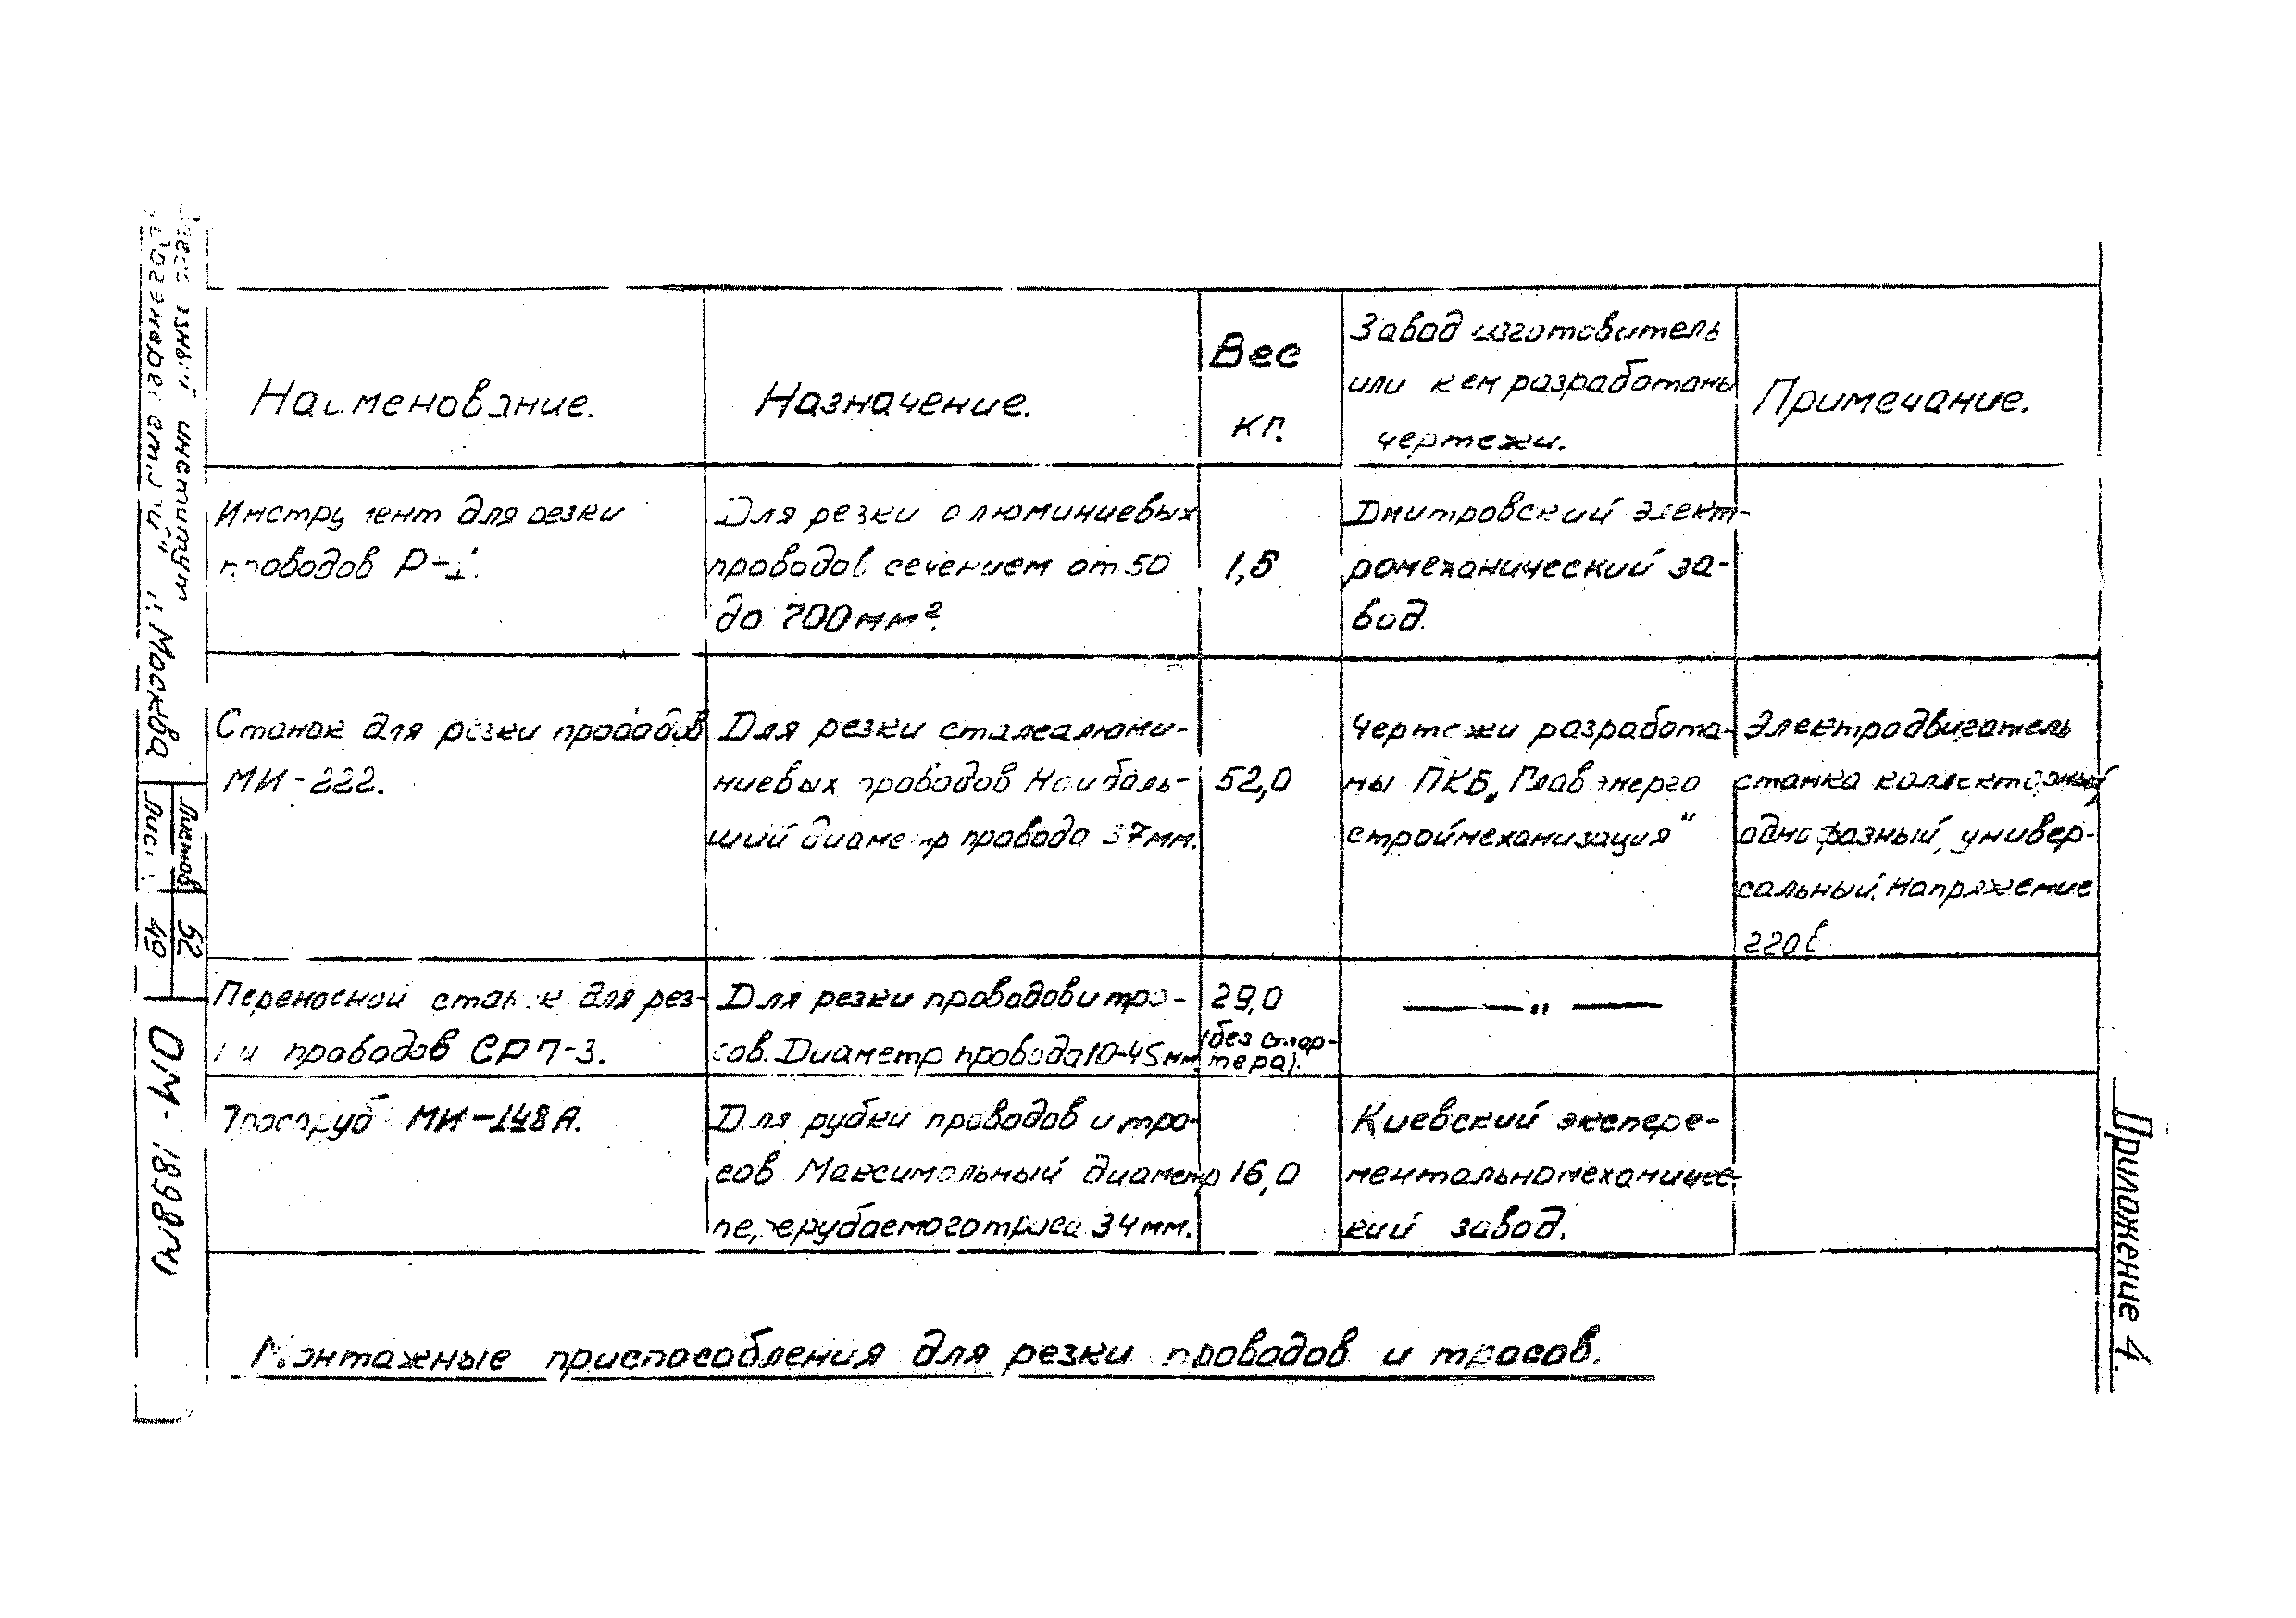 Приложение 4.
Наименование.
Назначение.
Вес
кг.
Завод изготовитель
или кем разработаны
чертежи.
Примечание.
Инструмент для резки
проводов Р-1.
Для резки алюминиевых
проводов сечением от 50
до 700 мм².
1,5
Дмитровский элект-
ромеханический за-
вод.
Станок для резки проводов
МИ-222.
Для резки сталеалюми-
ниевых проводов Наиболь-
ший диаметр провода 37мм.
52,0
Чертежи разработа-
ны ПКБ „Главэнерго
строймеханизация“
Электродвигатель
станка коллекторный
однофазный, универ-
сальный. Напряжение
220в
Переносной станок для рез-
ки проводов СРП-3.
Для резки проводов и тро-
сов. Диаметр провода 10-45мм.
29,0
(без стар-
тера).
— „ —
Тросоруб МИ-148А.
Для рубки проводов и тро-
сов Максимальный диаметр
перерубаемого троса 34мм.
16,0
Киевский экспере-
ментальномеханичес-
кий завод.
Монтажные приспособления для резки проводов и тросов.
институт
г. Москва
Листов 52
Лис. 49
ОМ-1898